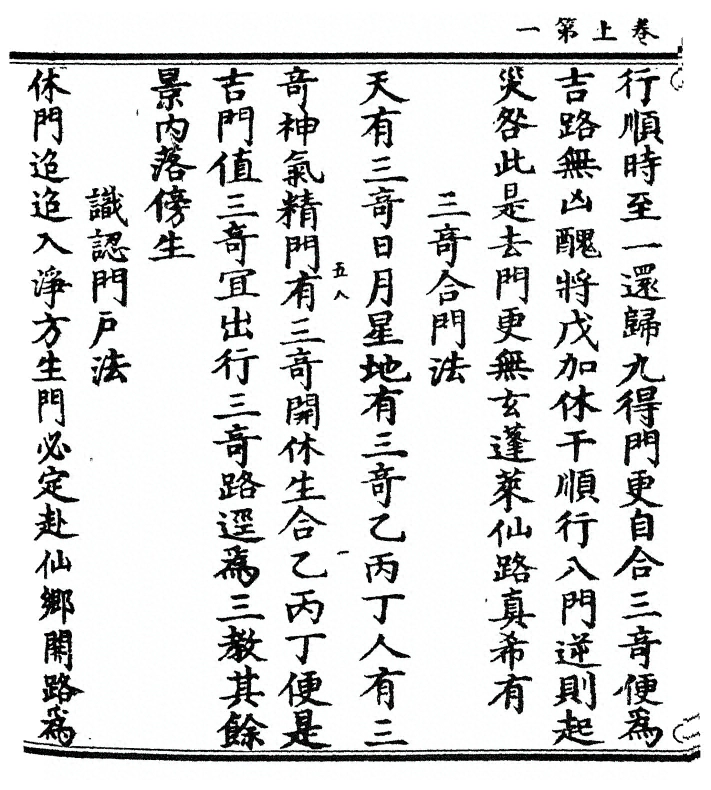 卷上第一
行順時至一還歸九得門更自合三奇便爲
吉路無凶醜將戊加休干順行八門逆則起
災咎此是去門更無玄蓬萊仙路真希有
三奇合門法
天有三奇日月星地有三奇乙丙丁人有三
奇神氣精門有三奇開休生合乙丙丁便是
五人
吉門值三奇宜出行三奇路逕爲三教其餘
景內落傍生
識認門戶法
休門迨迨入淨方生門必定赴仙鄉開路爲